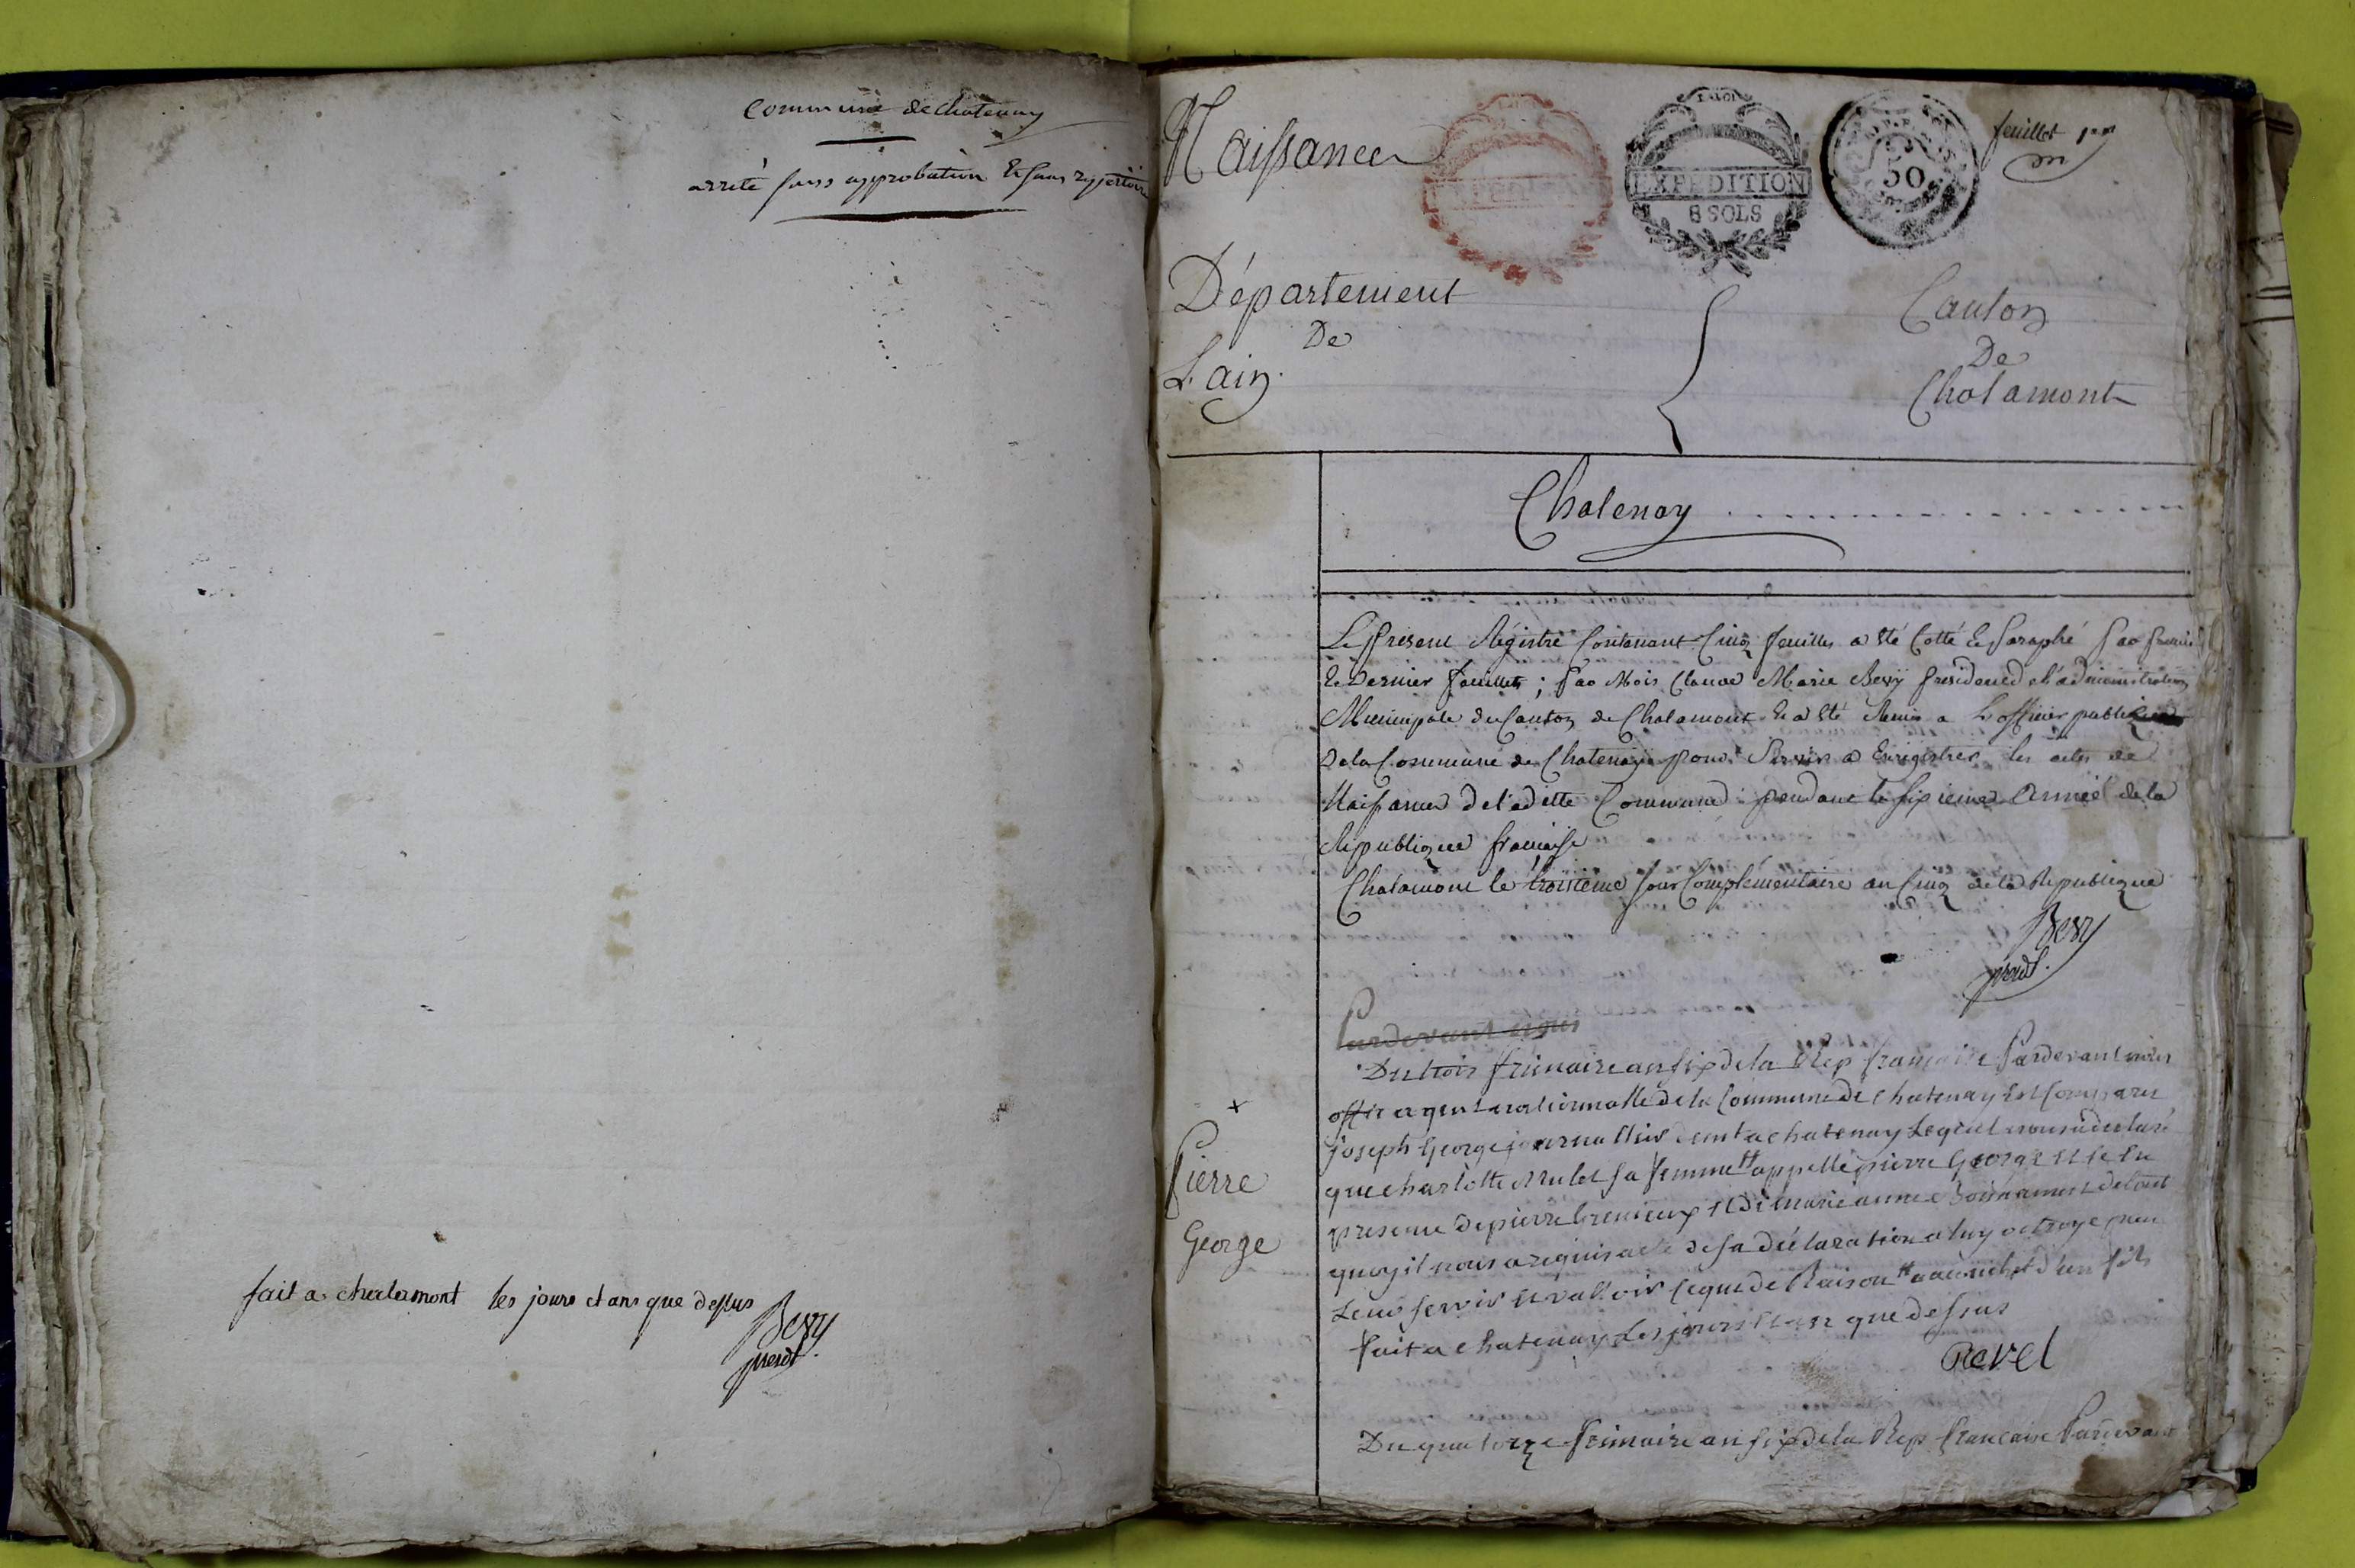 Commune de chatenay
arreté sans approbation et sans repertoire
fait a chalamont les jours et ans que dessus
Bevy
presdt.
Naissances
EXPEDITION
8 SOLS
50
feuillet 1er
Département
De
L'ain.
Canton
De
Chalamont
Chatenay
Le présent Régistre Contenant Cinq feuilles a été Cotté et Paraphé par premier
et Dernier feuillets ; par Mois Claude Marie Bevy president de l'administration
Municipale du Canton de Chalamont et a été Remis a L'officier public
De la Commune de Chatenay pour Servir a Enregistrer les actes de
Naissances de l'aditte Commune pendant la sixieme Année de la
Republique francaise
Chalamont le troisieme Jour Complémentaire an Cinq de la Republique
Bevy
presdt.
Pardevant nous
Du trois frimaire an six de la Rep francaise Pardevant nous
offir agent nationnalle de la Commune de chatenay Est Comparu
joseph George journallier demt a chatenay Lequel nous a declaré
que charlotte Mulet sa femme tt appellé pierre George et ce En
presence De pierre et De marie anne De tout
quoy il nous a requis acte de sa déclaration a luy octroye pour
Leur servir et valloir ceque de Raison tt a accouchée d'un fils
fait a chatenay Les jours et an que dessus
Revel
Pierre
George
Du quatorze frimaire an six de la Rep francaise Pardevant